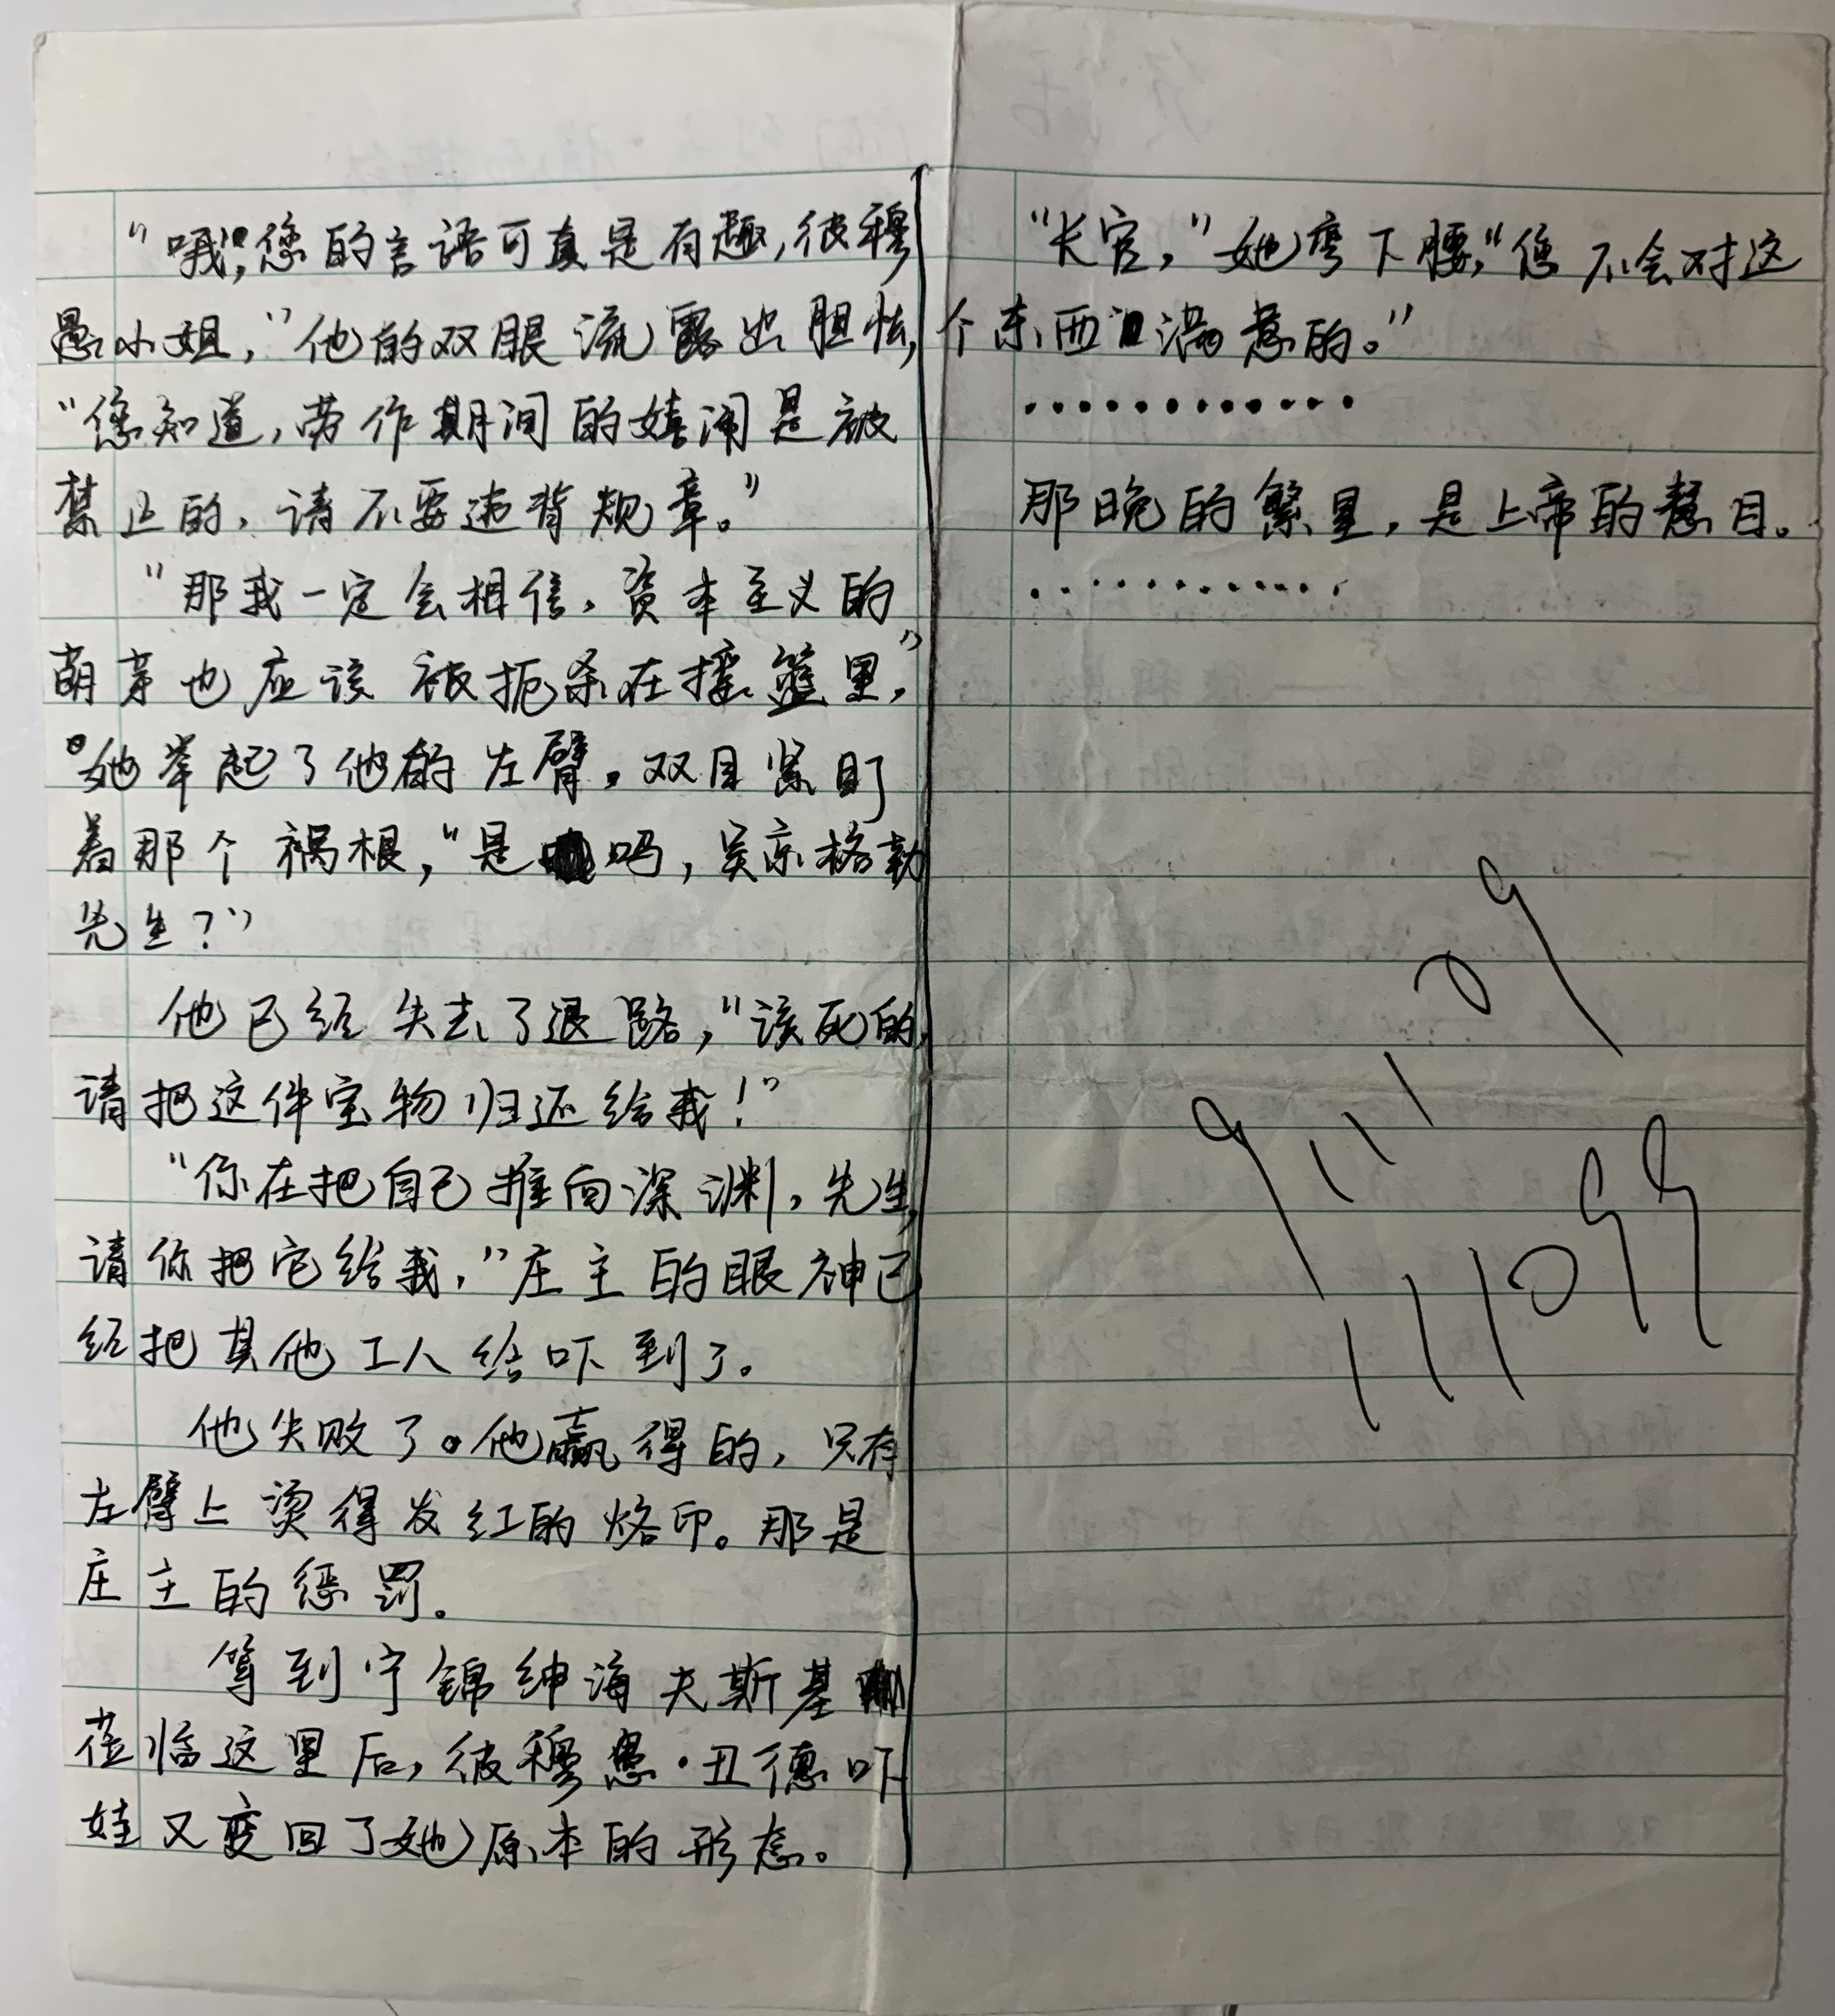 “哦,您的言语可真是有趣,彼穆
愚小姐,”他的双眼流露出胆怯,
“您知道,劳作期间的嬉闹是被
禁止的,请不要违背规章。”
“那我一定会相信,资本主义的
萌芽也应该被扼杀在摇篮里,”
她举起了他的左臂,双目紧盯
着那个祸根,“是吗,吴京格勒
先生?”
他已经失去了退路,“该死的,
请把这件宝物归还给我!”
“你在把自己推向深渊,先生,
请你把它给我,”庄主的眼神已
经把其他工人给吓到了。
他失败了。他赢得的,只有
左臂上烫得发红的烙印。那是
庄主的惩罚。
等到宁锦绅海夫斯基
莅临这里后,彼穆愚·丑德吓
娃又变回了她原本的形态。
“长官,”她弯下腰,“您不会对这
个东西满意的。”
............
那晚的繁星,是上帝的慧目。
............